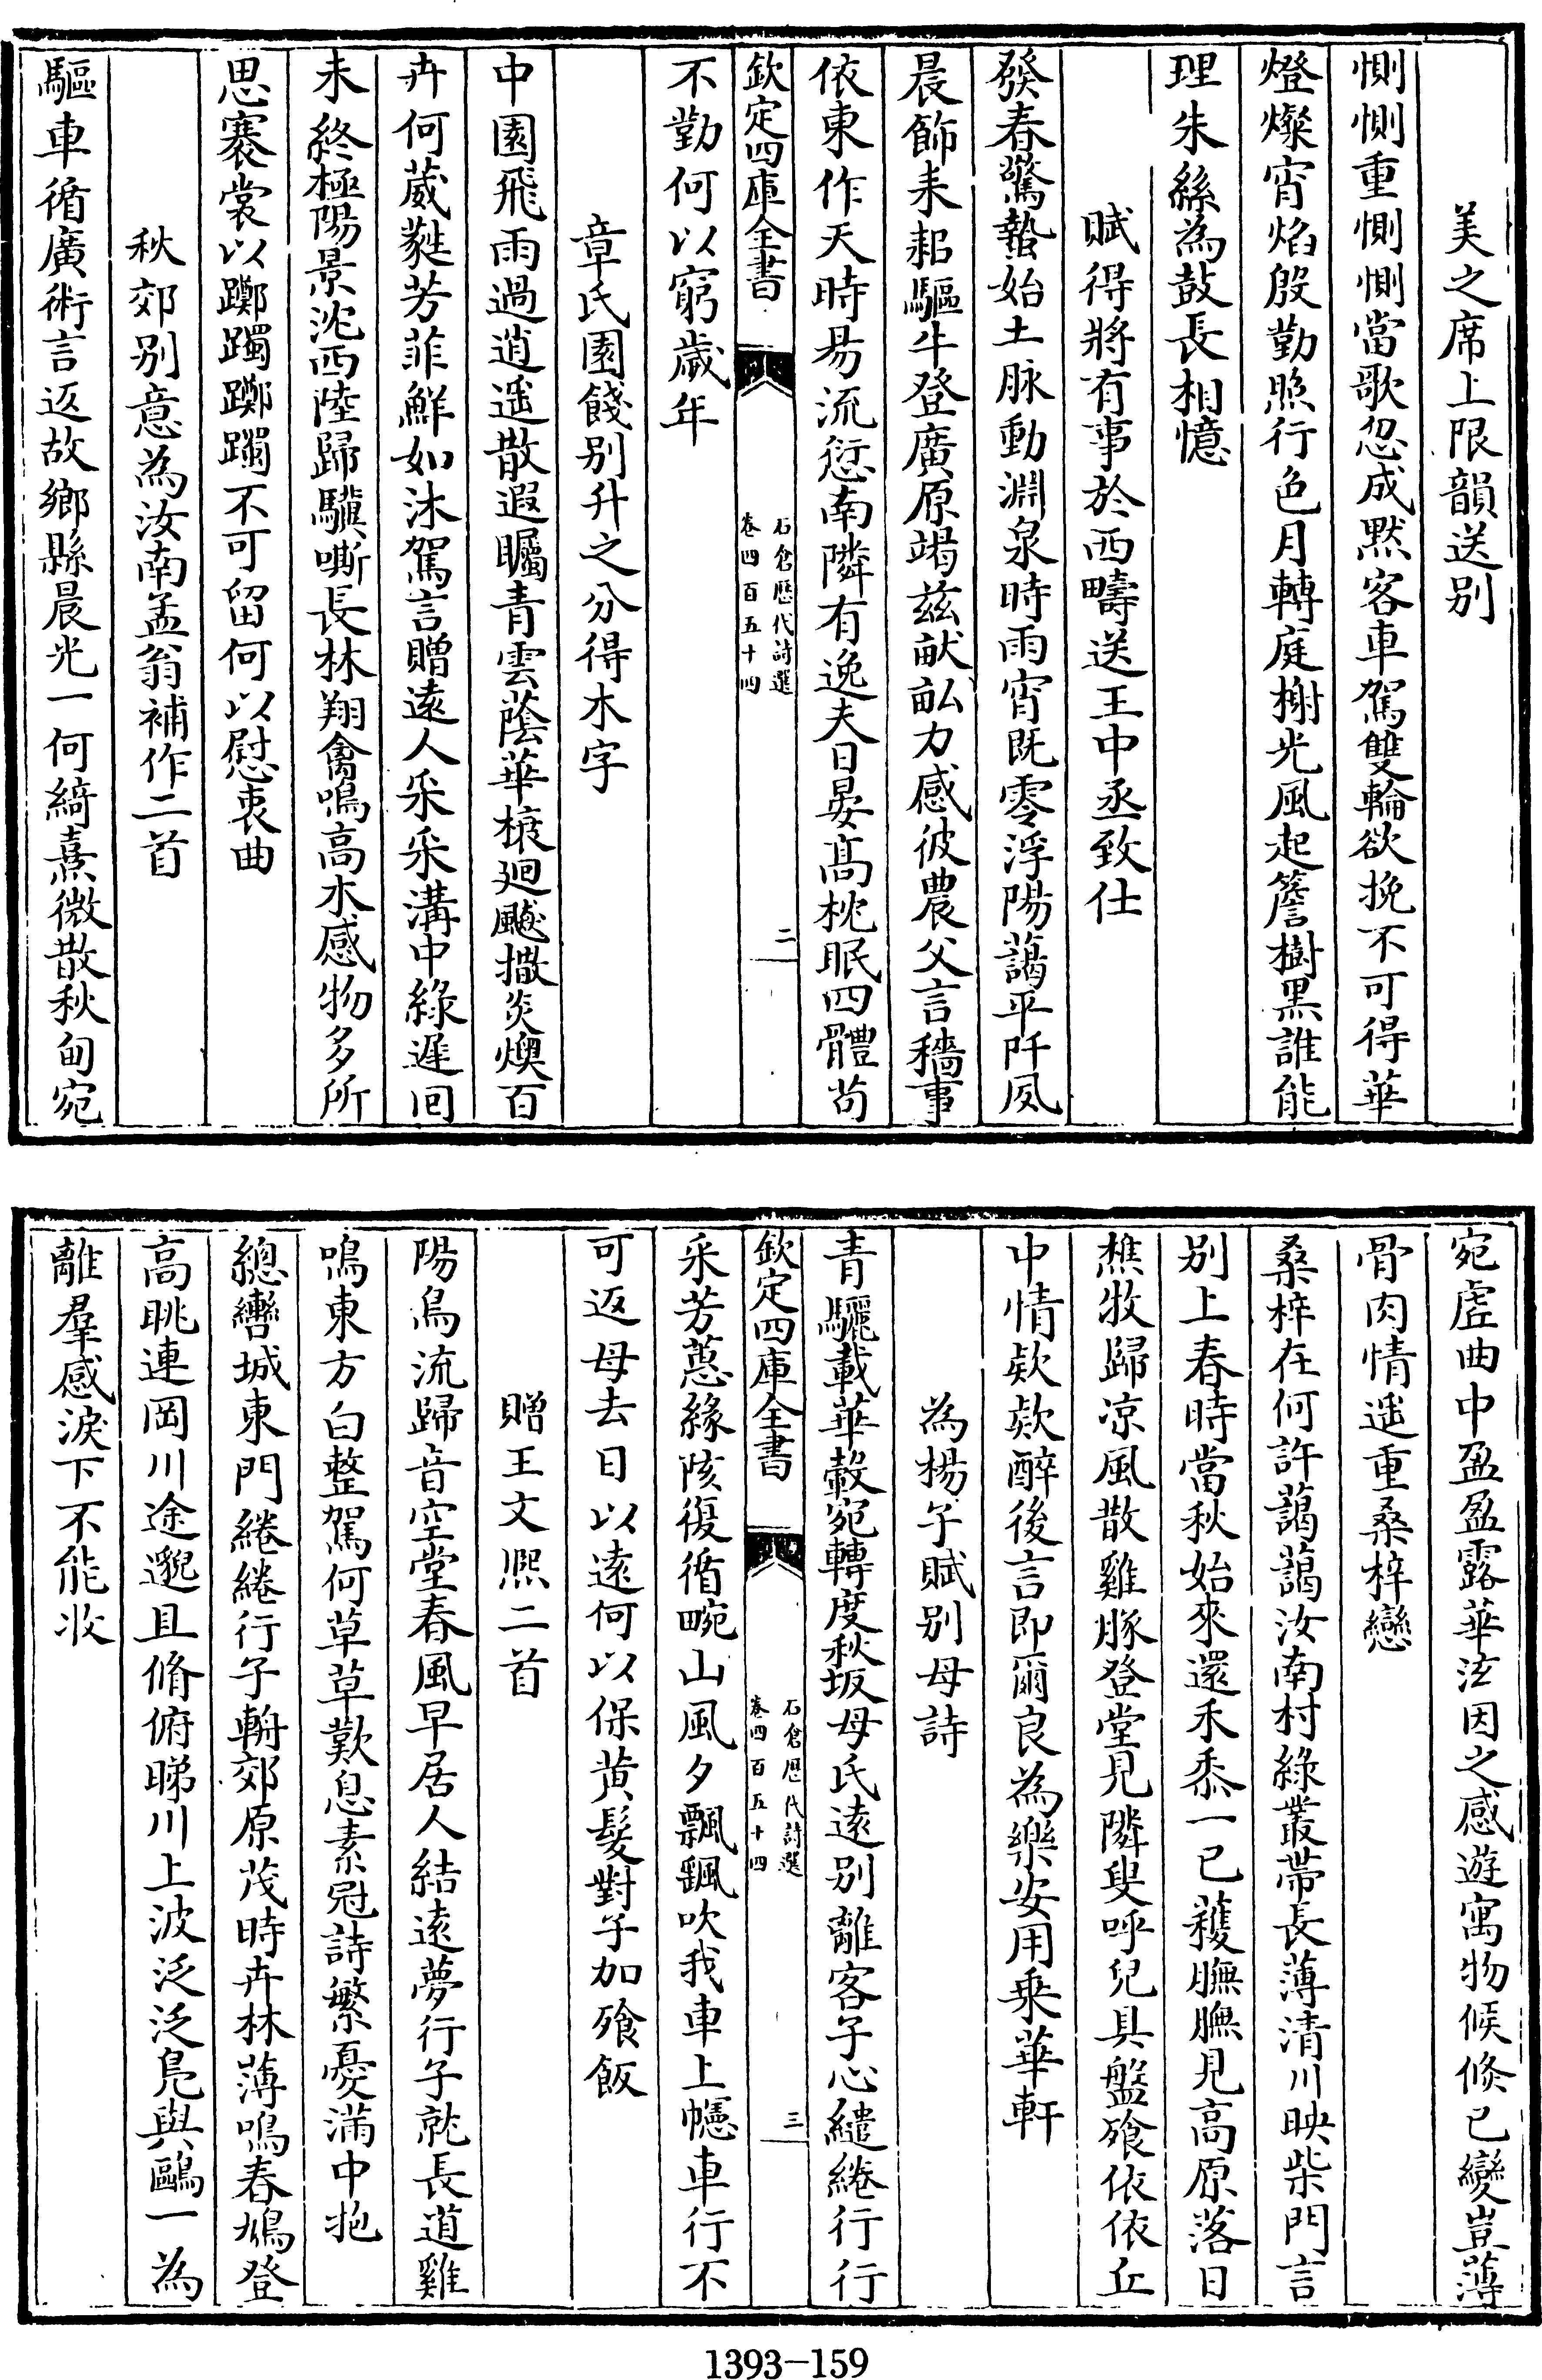 美之席上限韻送别
惻惻重惻惻當歌忽成黙客車駕雙輪欲挽不可得華
燈燦宵焰殷勤照行色月轉庭榭光風起簷樹黒誰能
理朱絲為鼓長相憶
賦得將有事於西疇送王中丞致仕
發春驚蟄始土脉動淵泉時雨宵既零浮陽藹平阡夙
晨飾耒耜驅牛登廣原竭兹畎畝力感彼農父言穡事
依東作天時易流愆南隣有逸夫日晏髙枕眠四體苟
欽定四庫全書
石倉歴代詩選
卷四百五十四
二
不勤何以窮歲年
章氏園餞别升之分得木字
中園飛雨過逍遥散遐矚青雲蔭華榱廻飈撒炎燠百
卉何葳蕤芳菲鮮如沐駕言贈遠人采采溝中綠遲回
未終極陽景沈西陸歸驥嘶長林翔禽鳴高木感物多所
思褰裳以躑躅躑躅不可留何以慰衷曲
秋郊别意為汝南孟翁補作二首
驅車循廣術言返故鄉縣晨光一何綺熹微散秋甸宛
宛虚曲中盈盈露華泫因之感遊寓物候倐已變豈薄
骨肉情遥重桑梓戀
桑梓在何許藹藹汝南村綠叢帶長薄清川映柴門言
别上春時當秋始來還禾黍一已穫膴膴見高原落日
樵牧歸凉風散雞豚登堂見隣叟呼兒具盤飱依依丘
中情欵欵醉後言即爾良為樂安用乘華軒
為楊子賦别母詩
青驪載華轂宛轉度秋坂母氏遠别離客子心繾綣行行
欽定四庫全書
石倉歴代詩選
卷四百五十四
三
采芳蕙緣陔復循畹山風夕飄飄吹我車上幰車行不
可返母去日以遠何以保黄髮對子加飱飯
贈王文熈二首
陽鳥流歸音空堂春風早居人結遠夢行子就長道雞
鳴東方白整駕何草草歎息素冠詩繁憂滿中抱
總轡城東門綣綣行子輈郊原茂時卉林薄鳴春鳩登
高眺連岡川途邈且脩俯睇川上波泛泛鳬與鷗一為
離羣感淚下不能收
1393-159